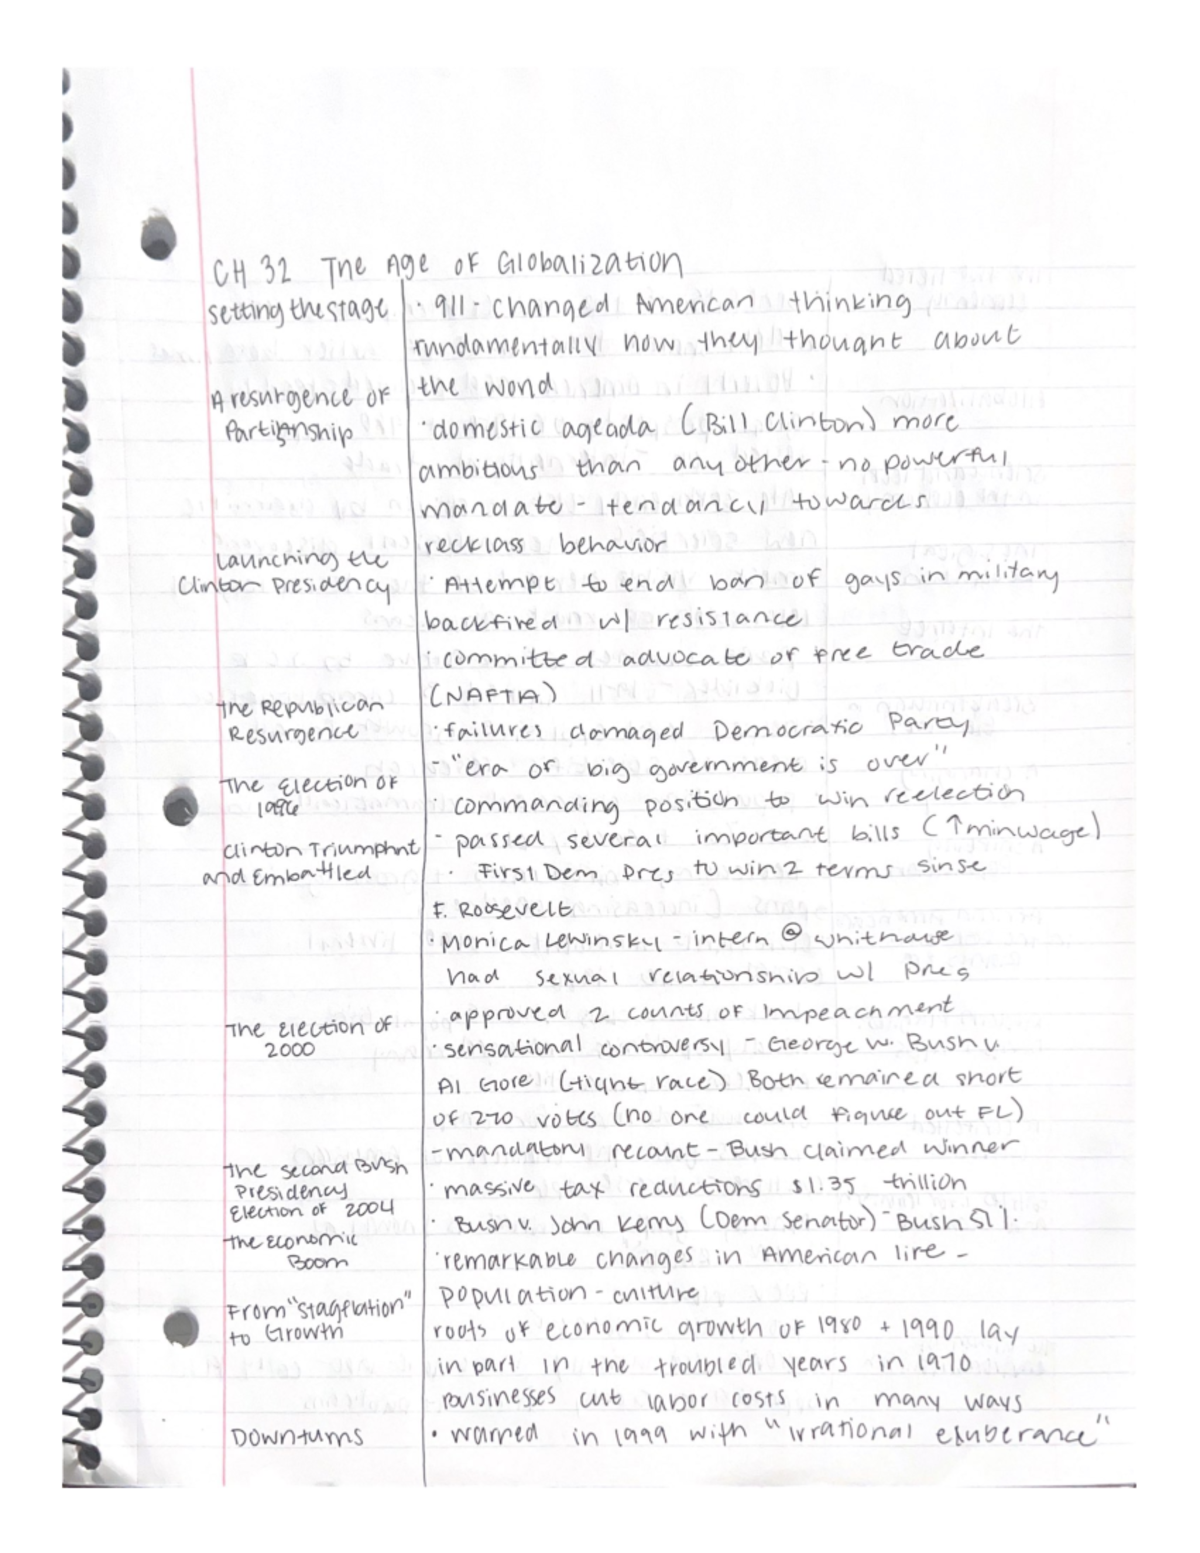 CH 32 The Age of Globalization
setting the stage · 911 - changed American thinking
fundamentally how they thought about
the world
A resurgence of
Partisanship · domestic agenda (Bill Clinton) more
ambitious than any other - no powerful
mandate - tendancy towards
recklass behavior
Launching the
Clinton Presidency · Attempt to end ban of gays in military
backfired w/ resistance
· committed advocate of free trade
(NAFTA)
the Republican
Resurgence · failures damaged Democratic Party
- "era of big government is over"
The Election of
1996 · commanding position to win reelection
- passed several important bills (↑minwage)
Clinton Triumphnt
and Embattled · First Dem Pres to win 2 terms sinse
F. Roosevelt
· Monica Lewinsky - intern @ whithouse
had sexual relationship w/ pres
· approved 2 counts of Impeachment
The Election of
2000 · sensational controversy - George W. Bush v.
Al Gore (tight race) Both remained short
of 270 votes (no one could figure out FL)
- mandatory recount - Bush claimed winner
the second Bush
Presidency · massive tax reductions $1.35 trillion
Election of 2004 · Bush v. John Kerry (Dem Senator) - Bush 51%
the Economic
Boom · remarkable changes in American life -
population - culture
From "stagflation"
to Growth roots of economic growth of 1980 + 1990 lay
in part in the troubled years in 1970
Businesses cut labor costs in many ways
Downturns · warned in 1999 with "irrational exuberance"